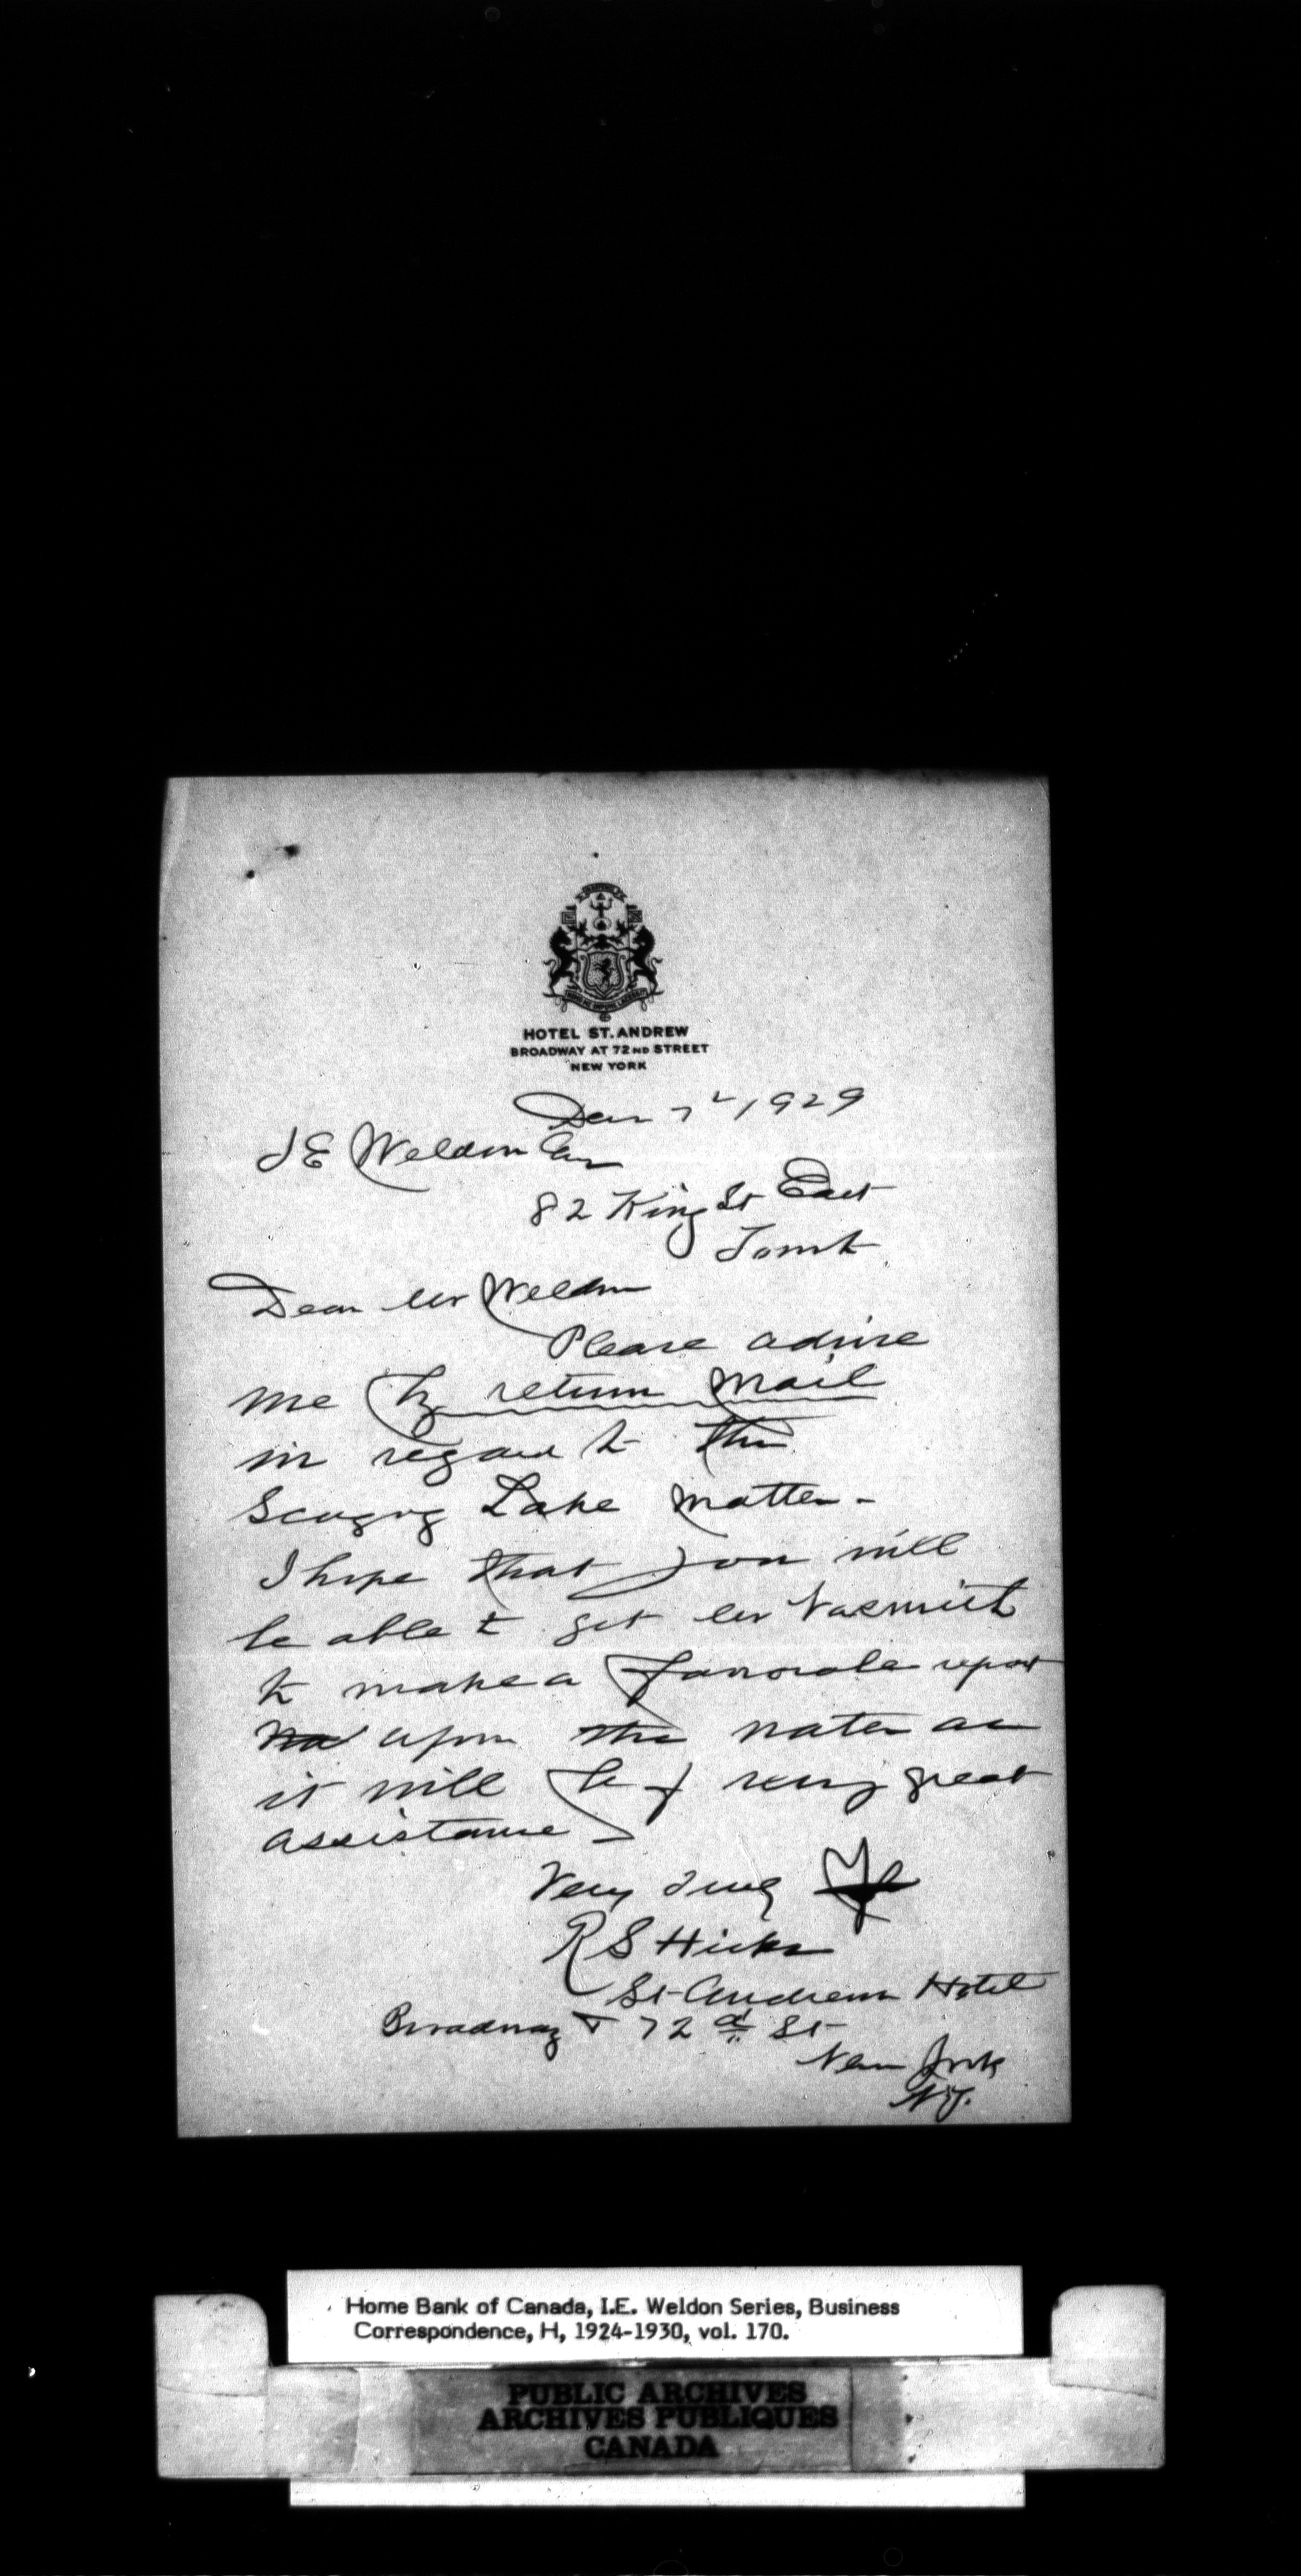 HOTEL ST. ANDREW
BROADWAY AT 72ND STREET
NEW YORK
1929
I E Weldon Esq
82 King St East
Toronto
Dear Mr Weldon
Please advise
me by return mail
in regard to the
Scugog Lake matter-
I hope that you will
be able to get Mr Nasmith
to make a favorable report
upon the water as
it will be of very great
assistance
Very truly
R S Hicks
St Andrew Hotel
Broadway & 72d St
New York
N.Y.
Home Bank of Canada, I.E. Weldon Series, Business
Correspondence, H, 1924-1930, vol. 170.
PUBLIC ARCHIVES
ARCHIVES PUBLIQUES
CANADA